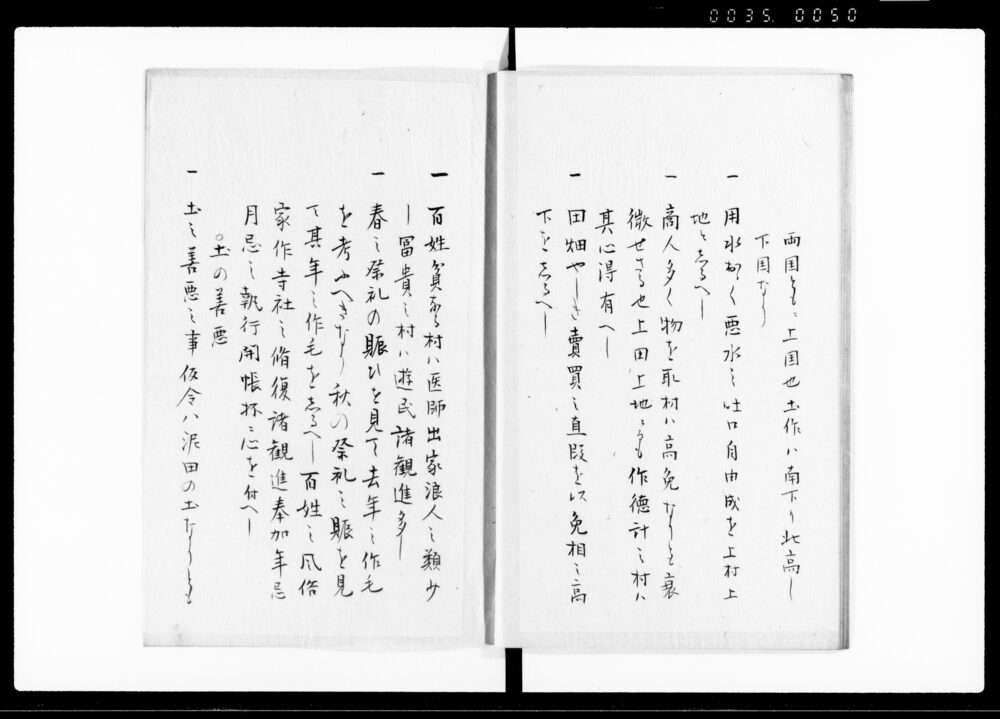 0035. 0050
両国とも上国也土作ハ南下り北高し
下国なり
一 用水能く悪水之吐口自由成を上村上
地と志るへし
一 商人多く物を取村ハ高免なりとも衰
微せさる也上田上地にても作徳計之村ハ
其心得有へし
一 田畑やしき売買之直段を以免相之高
下を志るへし
一 百姓貧なる村ハ医師出家浪人之類少
し冨貴之村ハ遊民諸観進多し
一 春之祭礼の賑ひを見て去年之作毛
を考ふへきなり秋の祭礼之賑を見
て其年之作毛を志るへし百姓之風俗
家作寺社之脩復諸観進奉加年忌
月忌之執行開帳抔ニ心を付へし
○土の善悪
一 土之善悪之事仮令ハ泥田の土なりとも